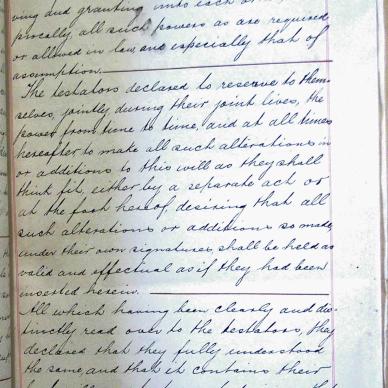 ving and granting unto each
procally, all such powers as are required
or allowed in law, and especially that of
assumption.
The testators declared to reserve to them-
selves, jointly during their joint lives, the
power from time to time, and at all times
hereafter to make all such alterations in
or additions to this will as they shall
think fit, either by a separate act or
at the foot hereof, desiring that all
such alterations or additions so made
under their own signatures, shall be held as
valid and effectual as if they had been
inserted herein.
All which having been clearly and dis-
tinctly read over to the testators, they
declared that they fully understood
the same, and that it contains their